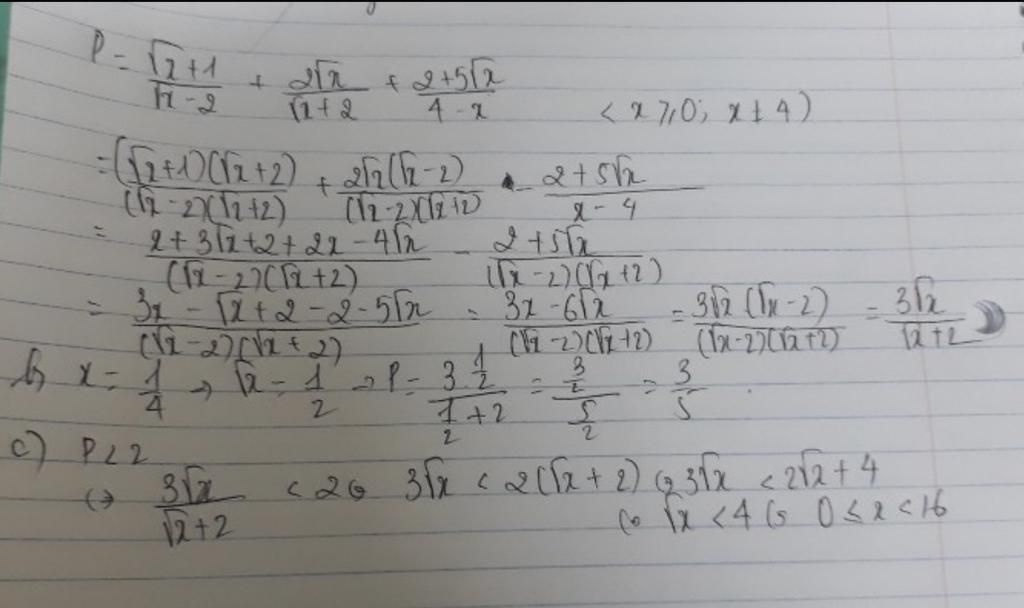 P = (√x+1)/(√x-2) + 2√x/(√x+2) + (2+5√x)/(4-x) (x ≥ 0; x ≠ 4)
= (√x+1)(√x+2)/(√x-2)(√x+2) + 2√x(√x-2)/(√x-2)(√x+2) - (2+5√x)/(x-4)
= (x+3√x+2+2x-4√x)/(√x-2)(√x+2) - (2+5√x)/(√x-2)(√x+2)
= (3x-√x+2-2-5√x)/(√x-2)(√x+2) = (3x-6√x)/(√x-2)(√x+2) = 3√x(√x-2)/(√x-2)(√x+2) = 3√x/(√x+2)
b) x = 1/4 → √x = 1/2 → P = (3·1/2)/(1/2+2) = (3/2)/(5/2) = 3/5
c) P < 2
⇔ 3√x/(√x+2) < 2 ⇔ 3√x < 2(√x+2) ⇔ 3√x < 2√x+4
⇔ √x < 4 ⇔ 0 ≤ x < 16